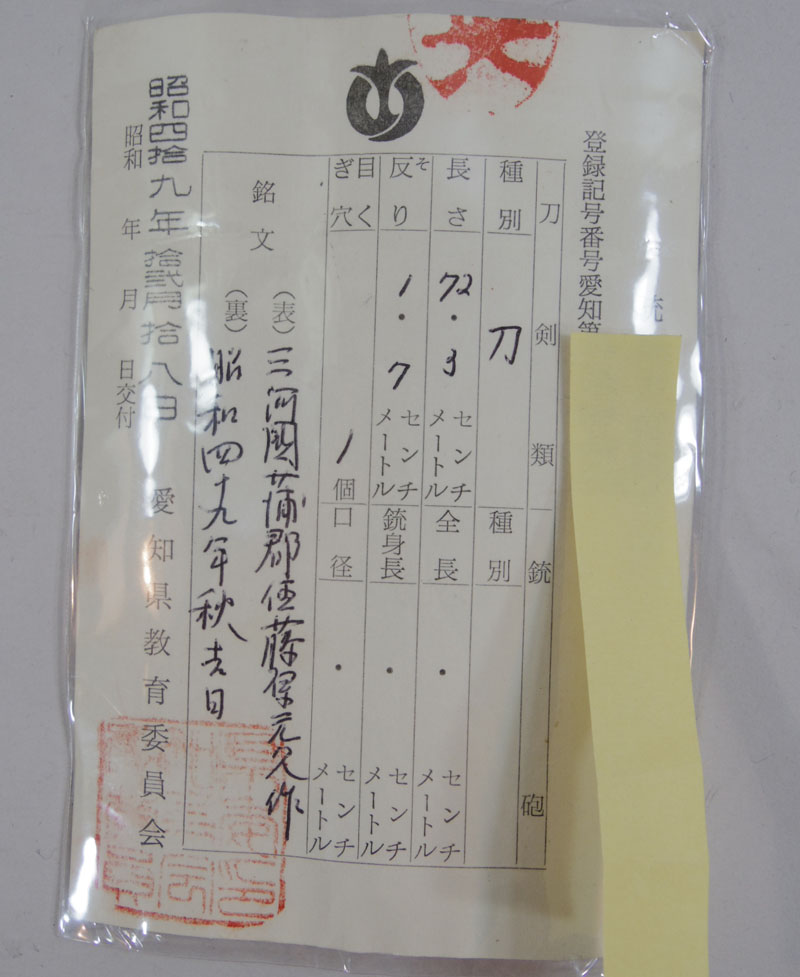 登録記号番号愛知第
刀剣類
銃砲
種別 刀
長さ 72.3 センチメートル
反り そ 1.7 センチメートル
目くぎ穴 1 個
種別
全長 . センチメートル
銃身長 . センチメートル
口径 . センチメートル
銘文
(表) 三河国蒲郡住藤原元久作
(裏) 昭和四十九年秋吉日
昭和四拾九年拾弐月拾八日
昭和 年 月 日交付
愛知県教育委員会